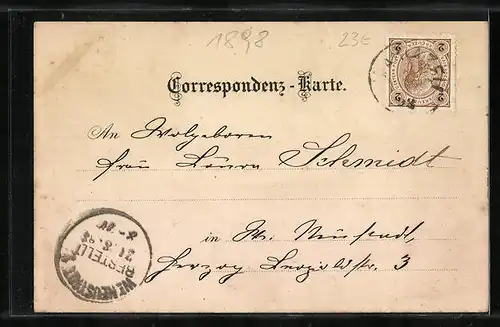 1898 23€
Correspondenz-Karte.
An Wolgeboren
Frau Laura Schmidt
in Wr. Neustadt,
Herzog Leopoldstr. 3
WR. NEUSTADT
BESTELLT
21.8.98